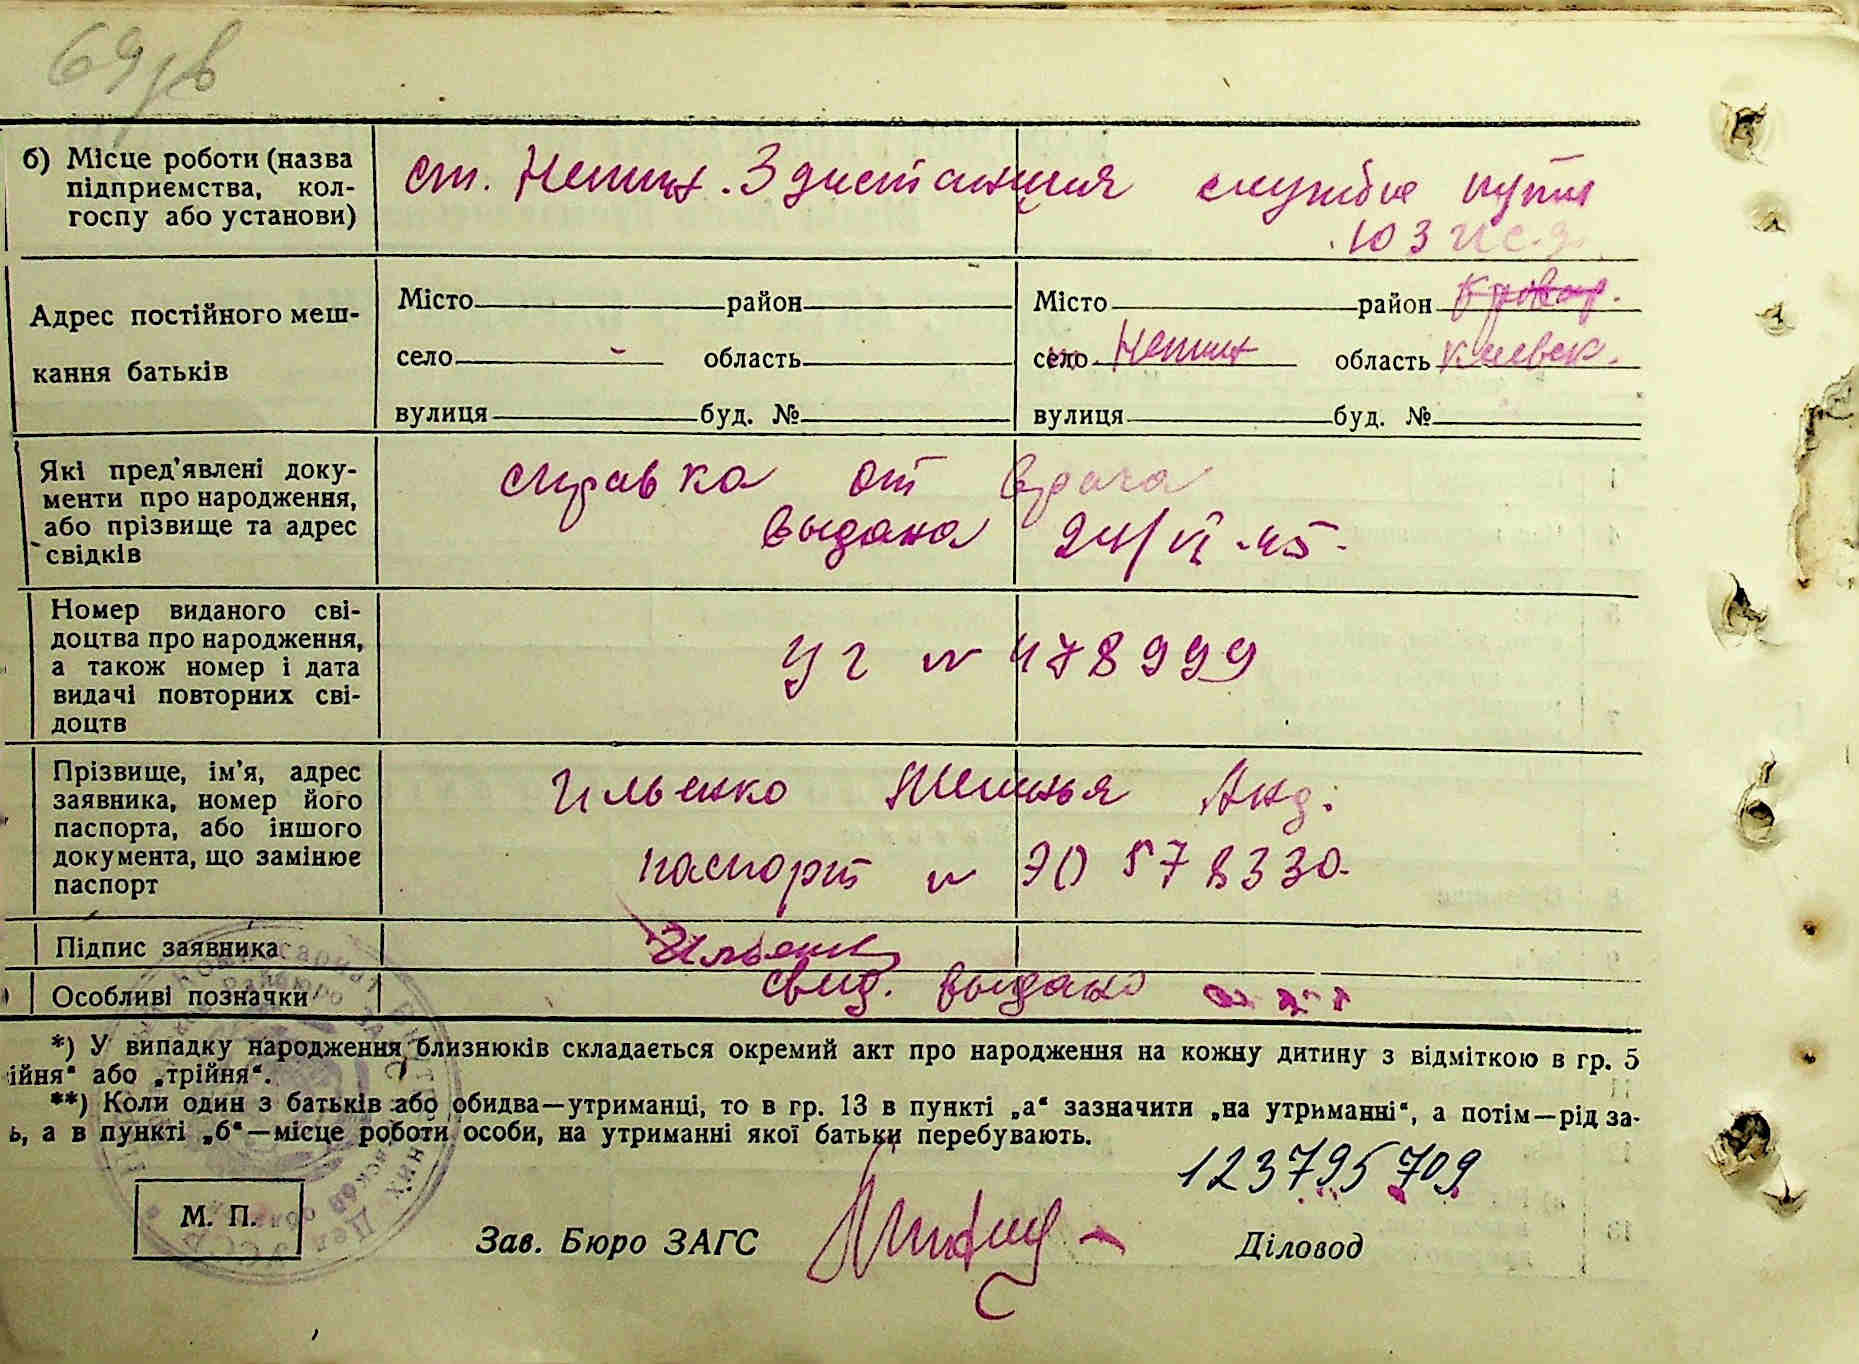 69
б) Місце роботи (назва
підприємства, кол-
госпу або установи)
ст. 3 дистанция службы пути
ЮЗ
Адрес постійного меш-
кання батьків
Місто район Місто район
село область село область Киевск.
вулиця буд. № вулиця буд. №
Які пред'явлені доку-
менти про народження,
або прізвище та адрес
свідків
справка от врача
выдана 24/VI-45.
Номер виданого сві-
доцтва про народження,
а також номер і дата
видачі повторних сві-
доцтв
УГ N 478999
Прізвище, ім'я, адрес
заявника, номер його
паспорта, або іншого
документа, що замінює
паспорт
Ильенко Анд.
паспорт N ЭО 578330.
Підпис заявника
Ильенк
Особливі позначки
свид. выдано
*) У випадку народження близнюків складається окремий акт про народження на кожну дитину з відміткою в гр. 5
ійня" або „трійня".
**) Коли один з батьків або обидва—утриманці, то в гр. 13 в пункті „а" зазначити „на утриманні", а потім—рід за-
ь, а в пункті „б"—місце роботи особи, на утриманні якої батьки перебувають.
123795709
М. П.
Зав. Бюро ЗАГС
Діловод